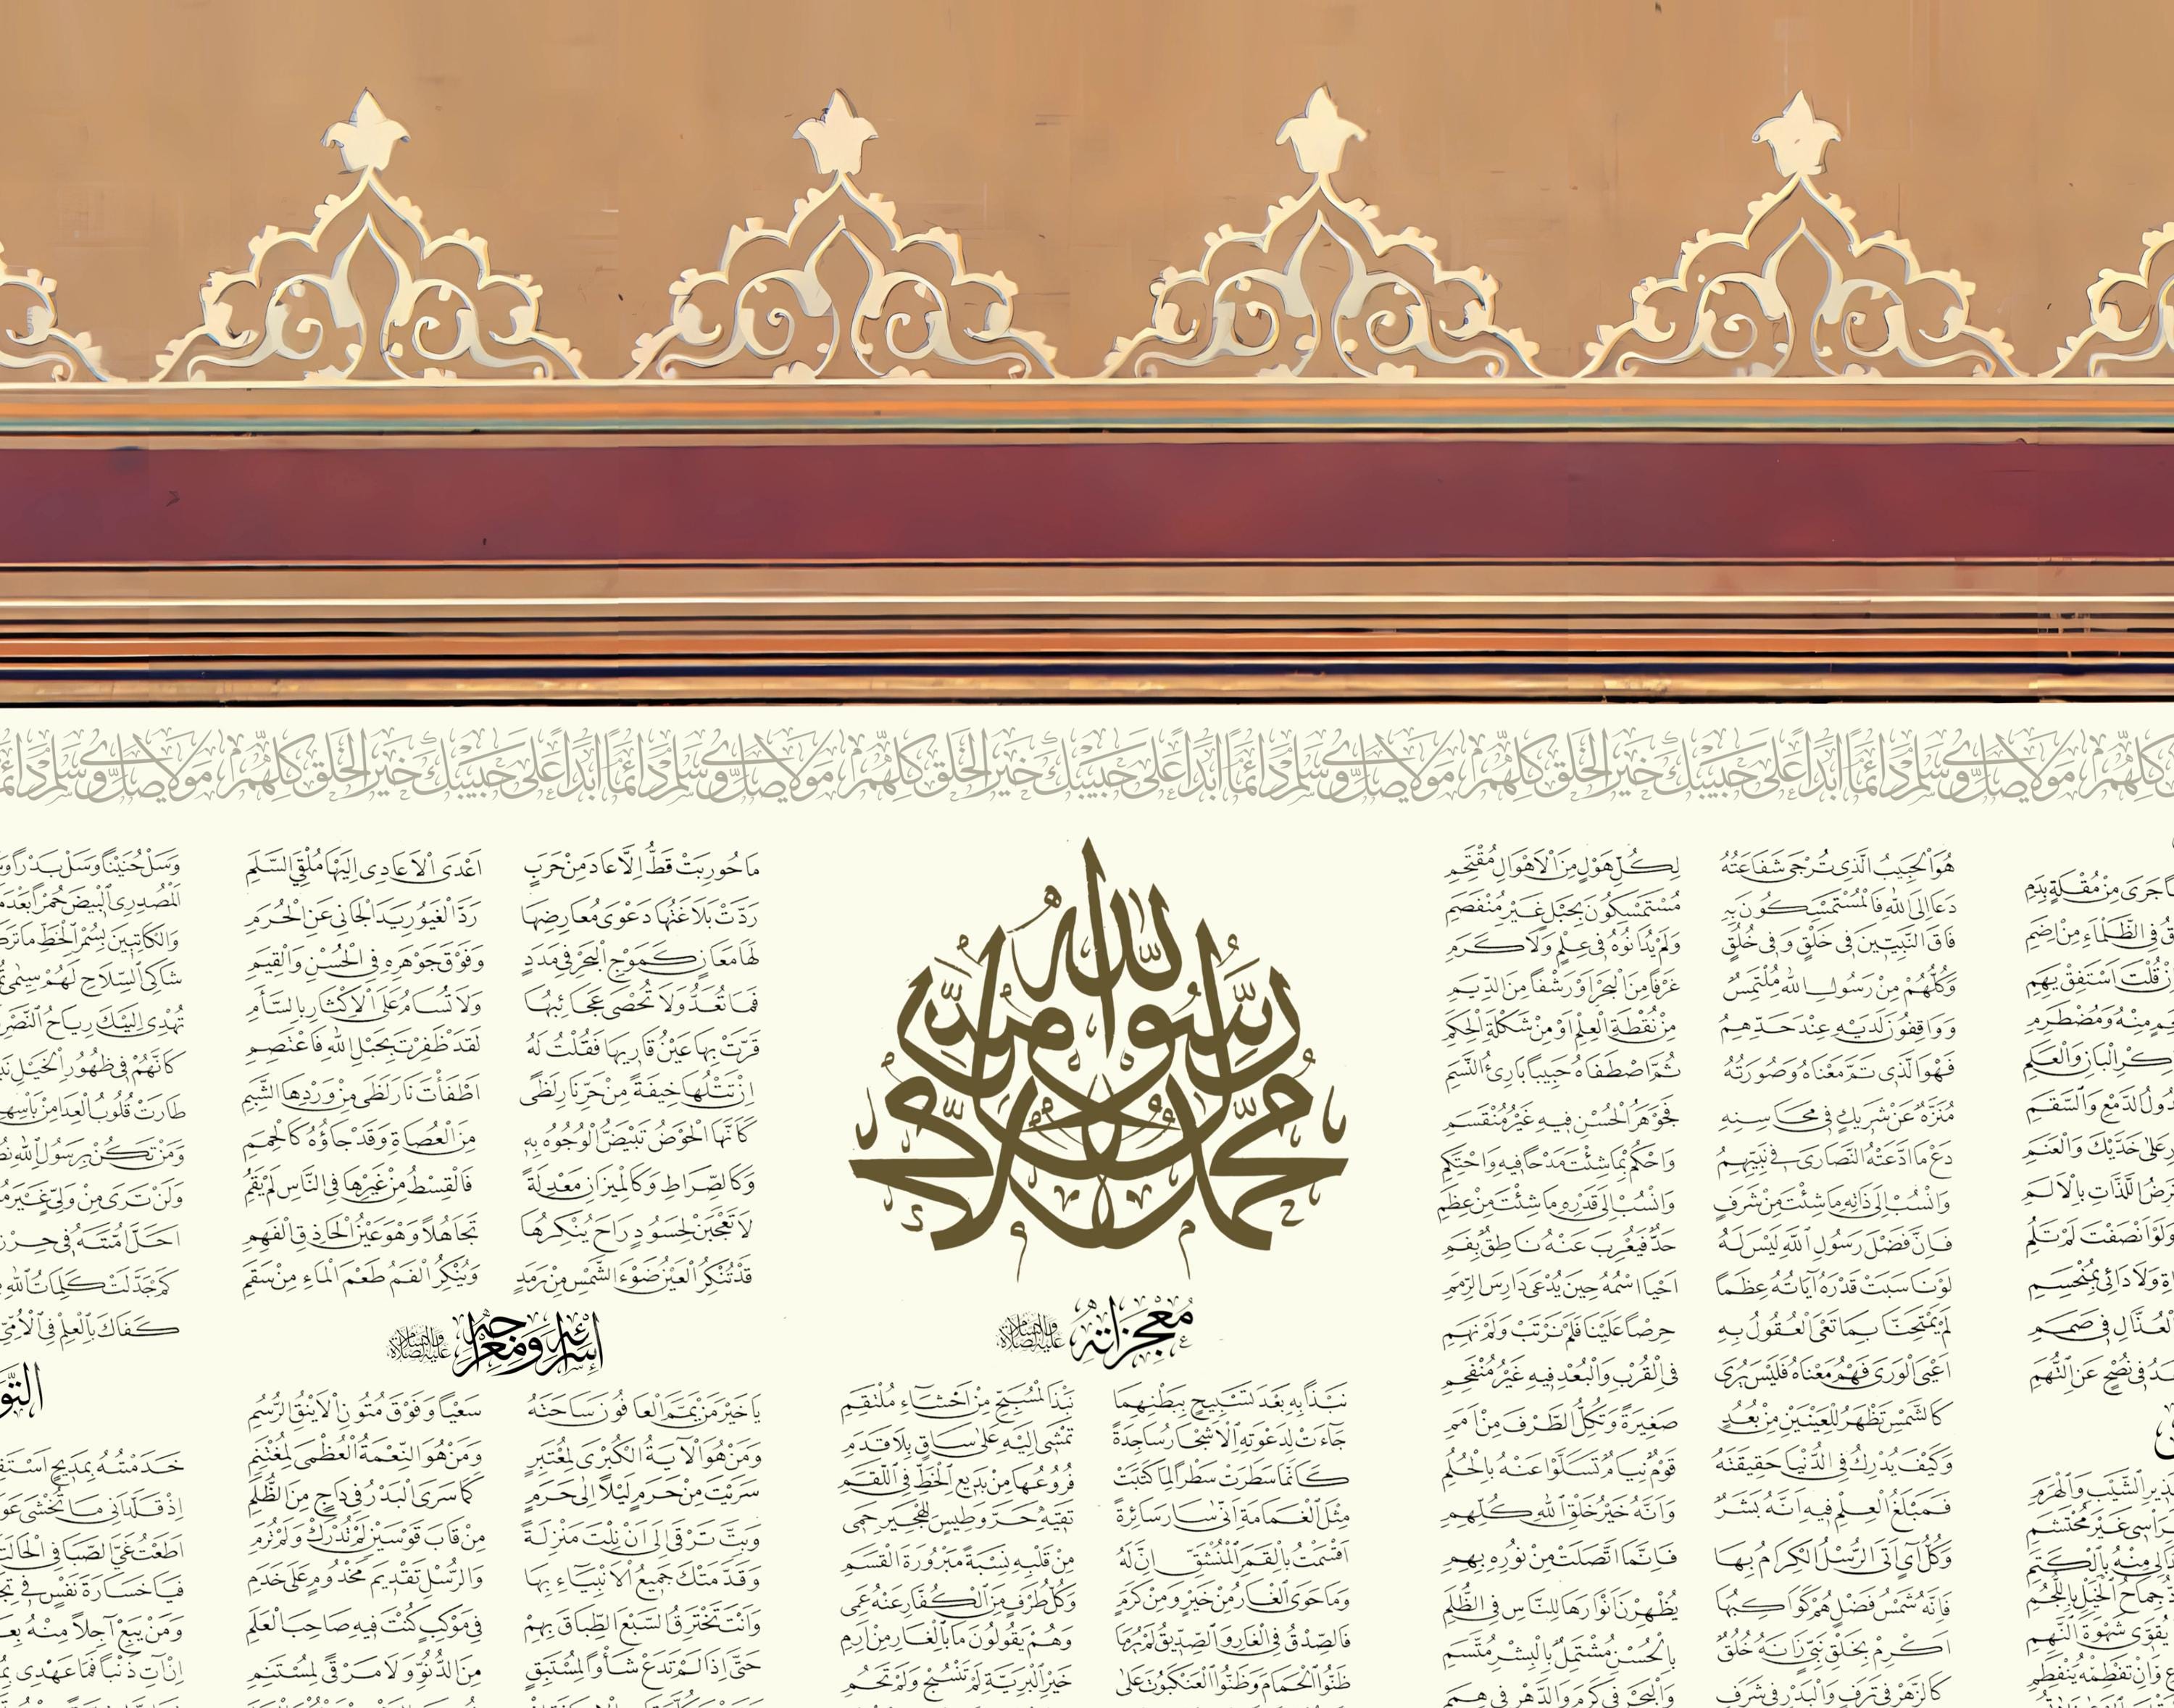 كلهم مولاي صل وسلم دائما ابدا على حبيبك خير الخلق كلهم مولاي صل وسلم دائما ابدا على حبيبك خير الخلق كلهم مولاي صل وسلم دائما ابدا على حبيبك خير الخلق كلهم مولاي صل وسلم
جَرَى مِنْ مُقْلَةٍ بِدَمِ
فِى الظَّلْمَاءِ مِنْ اِضَمِ
قُلْتَ اسْتَفِقْ يَهِمِ
مِنْهُ وَمُضْطَرِمِ
الْبَانِ وَالْعَلَمِ
الدَّمْعِ وَالسَّقَمِ
عَلَى خَدَّيْكَ وَالْعَنَمِ
اللَّذَّاتِ بِالْاَلَمِ
وَلَوْ اَنْصَفْتَ لَمْ تَلُمِ
وَلَا دَائِى بِمُنْحَسِمِ
الْعُذَّالِ فِى صَمَمِ
فِى نُصْحٍ عَنِ التُّهَمِ
الشَّيْبِ وَالْهَرَمِ
غَيْرَ مُحْتَشِمِ
مِنْهُ بِالْكَتَمِ
جِمَاحُ الْخَيْلِ بِاللُّجُمِ
يُقَوِّى شَهْوَةَ النَّهِمِ
وَاِنْ تَفْطِمْهُ يَنْفَطِمِ
هُوَ الْحَبِيبُ الَّذِى تُرْجَى شَفَاعَتُهُ لِكُلِّ هَوْلٍ مِنَ الْاَهْوَالِ مُقْتَحِمِ
دَعَا اِلَى اللهِ فَالْمُسْتَمْسِكُونَ بِهِ مُسْتَمْسِكُونَ بِحَبْلٍ غَيْرِ مُنْفَصِمِ
فَاقَ النَّبِيِّينَ فِى خَلْقٍ وَفِى خُلُقٍ وَلَمْ يُدَانُوهُ فِى عِلْمٍ وَلَا كَرَمِ
وَكُلُّهُمْ مِنْ رَسُولِ اللهِ مُلْتَمِسٌ غَرْفًا مِنَ الْبَحْرِ اَوْ رَشْفًا مِنَ الدِّيَمِ
وَوَاقِفُونَ لَدَيْهِ عِنْدَ حَدِّهِمُ مِنْ نُقْطَةِ الْعِلْمِ اَوْ مِنْ شَكْلَةِ الْحِكَمِ
فَهُوَ الَّذِى تَمَّ مَعْنَاهُ وَصُورَتُهُ ثُمَّ اصْطَفَاهُ حَبِيبًا بَارِئُ النَّسَمِ
مُنَزَّهٌ عَنْ شَرِيكٍ فِى مَحَاسِنِهِ فَجَوْهَرُ الْحُسْنِ فِيهِ غَيْرُ مُنْقَسِمِ
دَعْ مَا ادَّعَتْهُ النَّصَارَى فِى نَبِيِّهِمُ وَاحْكُمْ بِمَا شِئْتَ مَدْحًا فِيهِ وَاحْتَكِمِ
وَانْسُبْ اِلَى ذَاتِهِ مَا شِئْتَ مِنْ شَرَفٍ وَانْسُبْ اِلَى قَدْرِهِ مَا شِئْتَ مِنْ عِظَمِ
فَاِنَّ فَضْلَ رَسُولِ اللهِ لَيْسَ لَهُ حَدٌّ فَيُعْرِبَ عَنْهُ نَاطِقٌ بِفَمِ
لَوْ نَاسَبَتْ قَدْرَهُ آيَاتُهُ عِظَمًا اَحْيَا اسْمُهُ حِينَ يُدْعَى دَارِسَ الرِّمَمِ
لَمْ يَمْتَحِنَّا بِمَا تَعْيَى الْعُقُولُ بِهِ حِرْصًا عَلَيْنَا فَلَمْ نَرْتَبْ وَلَمْ نَهِمِ
اَعْيَى الْوَرَى فَهْمُ مَعْنَاهُ فَلَيْسَ يُرَى فِى الْقُرْبِ وَالْبُعْدِ فِيهِ غَيْرُ مُنْفَحِمِ
كَالشَّمْسِ تَظْهَرُ لِلْعَيْنَيْنِ مِنْ بُعُدٍ صَغِيرَةً وَتُكِلُّ الطَّرْفَ مِنْ اَمَمِ
وَكَيْفَ يُدْرِكُ فِى الدُّنْيَا حَقِيقَتَهُ قَوْمٌ نِيَامٌ تَسَلَّوْا عَنْهُ بِالْحُلُمِ
فَمَبْلَغُ الْعِلْمِ فِيهِ اَنَّهُ بَشَرٌ وَاَنَّهُ خَيْرُ خَلْقِ اللهِ كُلِّهِمِ
وَكُلُّ آىٍ اَتَى الرُّسْلُ الْكِرَامُ بِهَا فَاِنَّمَا اتَّصَلَتْ مِنْ نُورِهِ بِهِمِ
فَاِنَّهُ شَمْسُ فَضْلٍ هُمْ كَوَاكِبُهَا يُظْهِرْنَ اَنْوَارَهَا لِلنَّاسِ فِى الظُّلَمِ
اَكْرِمْ بِخَلْقِ نَبِىٍّ زَانَهُ خُلُقٌ بِالْحُسْنِ مُشْتَمِلٍ بِالْبِشْرِ مُتَّسِمِ
كَالزَّهْرِ فِى تَرَفٍ وَالْبَدْرِ فِى شَرَفٍ وَالْبَحْرِ فِى كَرَمٍ وَالدَّهْرِ فِى هِمَمِ
محمد رسول الله
مُعْجِزَاتِهِ عليه الصلاة والسلام
نَبْذًا بِهِ بَعْدَ تَسْبِيحٍ بِبَطْنِهِمَا نَبْذَ الْمُسَبِّحِ مِنْ اَحْشَاءِ مُلْتَقِمِ
جَاءَتْ لِدَعْوَتِهِ الْاَشْجَارُ سَاجِدَةً تَمْشِى اِلَيْهِ عَلَى سَاقٍ بِلَا قَدَمِ
كَاَنَّمَا سَطَرَتْ سَطْرًا لِمَا كَتَبَتْ فُرُوعُهَا مِنْ بَدِيعِ الْخَطِّ فِى اللَّقَمِ
مِثْلَ الْغَمَامَةِ اَنَّى سَارَ سَائِرَةً تَقِيهِ حَرَّ وَطِيسٍ لِلْهَجِيرِ حَمِى
اَقْسَمْتُ بِالْقَمَرِ الْمُنْشَقِّ اِنَّ لَهُ مِنْ قَلْبِهِ نِسْبَةً مَبْرُورَةَ الْقَسَمِ
وَمَا حَوَى الْغَارُ مِنْ خَيْرٍ وَمِنْ كَرَمٍ وَكُلُّ طَرْفٍ مِنَ الْكُفَّارِ عَنْهُ عَمِى
فَالصِّدْقُ فِى الْغَارِ وَالصِّدِّيقُ لَمْ يَرِمَا وَهُمْ يَقُولُونَ مَا بِالْغَارِ مِنْ اَرِمِ
ظَنُّوا الْحَمَامَ وَظَنُّوا الْعَنْكَبُوتَ عَلَى خَيْرِ الْبَرِيَّةِ لَمْ تَنْسُجْ وَلَمْ تَحُمِ
مَا حُورِبَتْ قَطُّ اِلَّا عَادَ مِنْ حَرَبٍ اَعْدَى الْاَعَادِى اِلَيْهَا مُلْقِىَ السَّلَمِ
رَدَّتْ بَلَاغَتُهَا دَعْوَى مُعَارِضِهَا رَدَّ الْغَيُورِ يَدَ الْجَانِى عَنِ الْحُرَمِ
لَهَا مَعَانٍ كَمَوْجِ الْبَحْرِ فِى مَدَدٍ وَفَوْقَ جَوْهَرِهِ فِى الْحُسْنِ وَالْقِيَمِ
فَمَا تُعَدُّ وَلَا تُحْصَى عَجَائِبُهَا وَلَا تُسَامُ عَلَى الْاِكْثَارِ بِالسَّأَمِ
قَرَّتْ بِهَا عَيْنُ قَارِيهَا فَقُلْتُ لَهُ لَقَدْ ظَفِرْتَ بِحَبْلِ اللهِ فَاعْتَصِمِ
اِنْ تَتْلُهَا خِيفَةً مِنْ حَرِّ نَارِ لَظًى اَطْفَأْتَ نَارَ لَظَى مِنْ وِرْدِهَا الشَّبِمِ
كَاَنَّهَا الْحَوْضُ تَبْيَضُّ الْوُجُوهُ بِهِ مِنَ الْعُصَاةِ وَقَدْ جَاؤُهُ كَالْحُمَمِ
وَكَالصِّرَاطِ وَكَالْمِيزَانِ مَعْدِلَةً فَالْقِسْطُ مِنْ غَيْرِهَا فِى النَّاسِ لَمْ يَقُمِ
لَا تَعْجَبَنْ لِحَسُودٍ رَاحَ يُنْكِرُهَا تَجَاهُلًا وَهْوَ عَيْنُ الْحَاذِقِ الْفَهِمِ
قَدْ تُنْكِرُ الْعَيْنُ ضَوْءَ الشَّمْسِ مِنْ رَمَدٍ وَيُنْكِرُ الْفَمُ طَعْمَ الْمَاءِ مِنْ سَقَمِ
اِسْرَائِهِ وَمِعْرَاجِهِ عليه الصلاة والسلام
يَا خَيْرَ مَنْ يَمَّمَ الْعَافُونَ سَاحَتَهُ سَعْيًا وَفَوْقَ مُتُونِ الْاَيْنُقِ الرُّسُمِ
وَمَنْ هُوَ الْآيَةُ الْكُبْرَى لِمُعْتَبِرٍ وَمَنْ هُوَ النِّعْمَةُ الْعُظْمَى لِمُغْتَنِمِ
سَرَيْتَ مِنْ حَرَمٍ لَيْلًا اِلَى حَرَمٍ كَمَا سَرَى الْبَدْرُ فِى دَاجٍ مِنَ الظُّلَمِ
وَبِتَّ تَرْقَى اِلَى اَنْ نِلْتَ مَنْزِلَةً مِنْ قَابَ قَوْسَيْنِ لَمْ تُدْرَكْ وَلَمْ تُرَمِ
وَقَدَّمَتْكَ جَمِيعُ الْاَنْبِيَاءِ بِهَا وَالرُّسْلِ تَقْدِيمَ مَخْدُومٍ عَلَى خَدَمِ
وَاَنْتَ تَخْتَرِقُ السَّبْعَ الطِّبَاقَ بِهِمْ فِى مَوْكِبٍ كُنْتَ فِيهِ صَاحِبَ الْعَلَمِ
حَتَّى اِذَا لَمْ تَدَعْ شَأْوًا لِمُسْتَبِقٍ مِنَ الدُّنُوِّ وَلَا مَرْقًى لِمُسْتَنِمِ
وَسَلْ حُنَيْنًا وَسَلْ بَدْرًا
اَلْمُصْدِرِى الْبِيضَ حُمْرًا بَعْدَ
وَالْكَاتِبِينَ بِسُمْرِ الْخَطِّ مَا
شَاكِى السِّلَاحِ لَهُمْ سِيمَى
تُهْدِى اِلَيْكَ رِيَاحُ النَّصْرِ
كَاَنَّهُمْ فِى ظُهُورِ الْخَيْلِ
طَارَتْ قُلُوبُ الْعِدَا مِنْ بَأْسِهِمْ
وَمَنْ تَكُنْ بِرَسُولِ اللهِ
وَلَنْ تَرَى مِنْ وَلِىٍّ غَيْرِ
اَحَلَّ اُمَّتَهُ فِى حِرْزِ
كَمْ جَدَّلَتْ كَلِمَاتُ اللهِ
كَفَاكَ بِالْعِلْمِ فِى الْاُمِّىِّ
خَدَمْتُهُ بِمَدِيحٍ
اِذْ قَلَّدَانِىَ مَا تُخْشَى
اَطَعْتُ غَىَّ الصِّبَا فِى
فَيَا خَسَارَةَ نَفْسٍ فِى
وَمَنْ يَبِعْ آجِلًا مِنْهُ
اِنْ آتِ ذَنْبًا فَمَا عَهْدِى